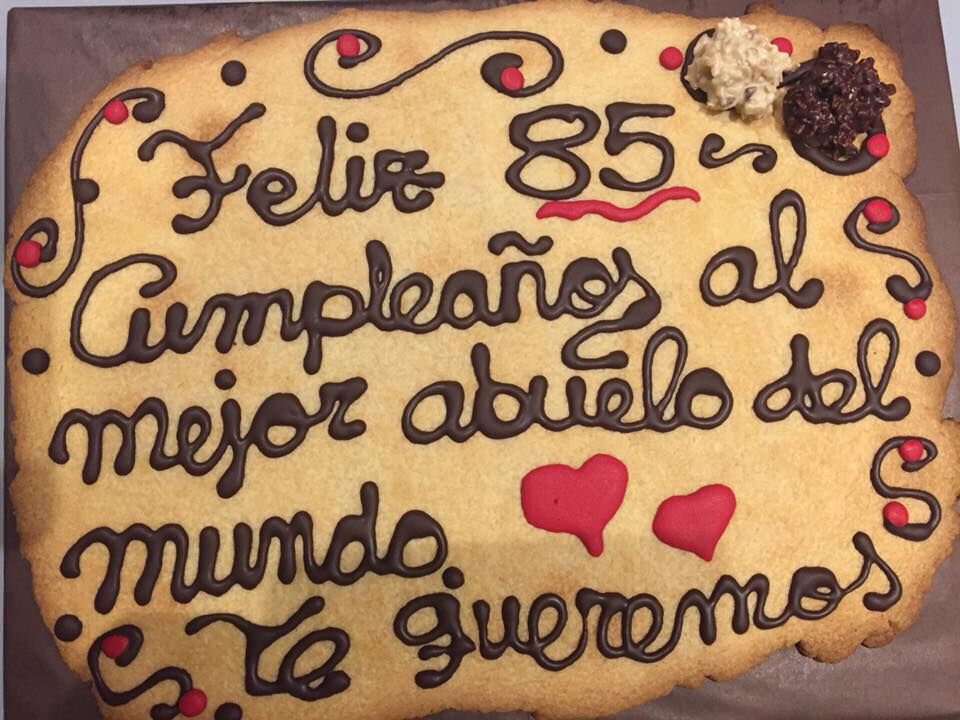 Feliz 85
Cumpleaños al
mejor abuelo del
mundo.
Te queremos